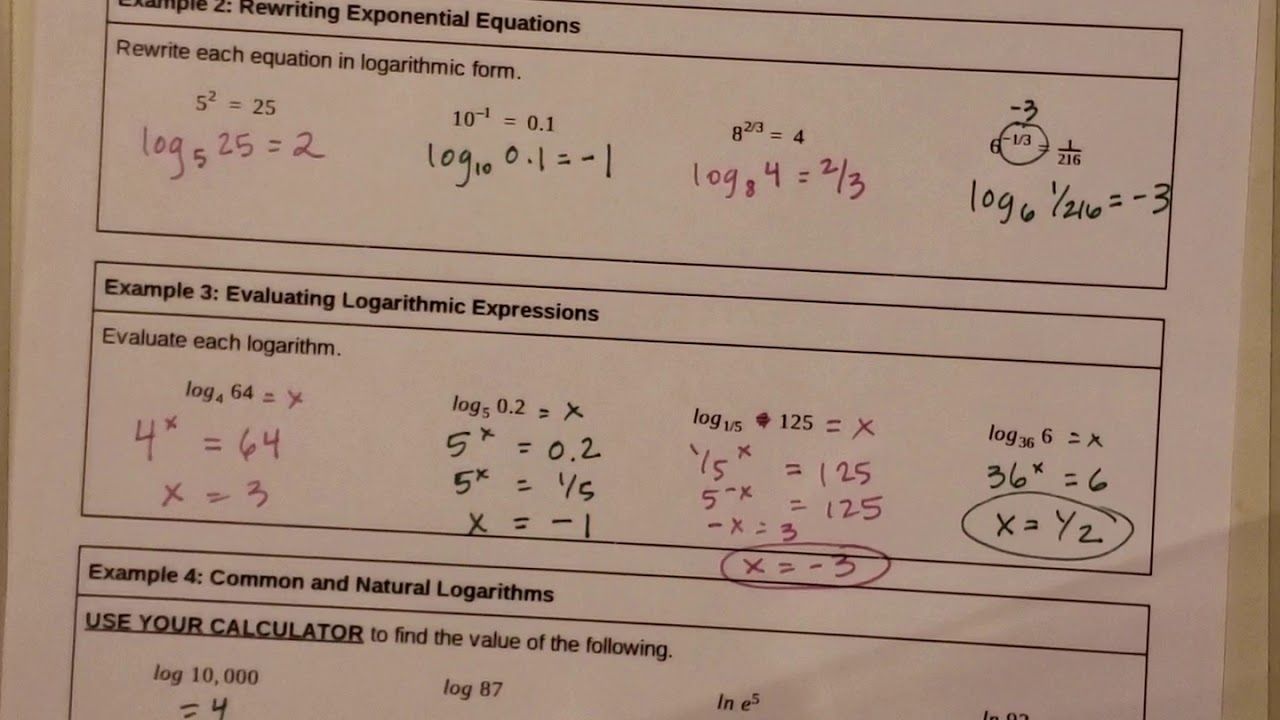 Example 2: Rewriting Exponential Equations
Rewrite each equation in logarithmic form.
5² = 25
log₅ 25 = 2
10⁻¹ = 0.1
log₁₀ 0.1 = -1
8^2/3 = 4
log₈ 4 = 2/3
-3
6^-1/3 = 1/216
log₆ 1/216 = -3
Example 3: Evaluating Logarithmic Expressions
Evaluate each logarithm.
log₄ 64 = x
4ˣ = 64
x = 3
log₅ 0.2 = x
5ˣ = 0.2
5ˣ = 1/5
x = -1
log₁/₅ 125 = x
1/5ˣ = 125
5⁻ˣ = 125
-x = 3
x = -3
log₃₆ 6 = x
36ˣ = 6
x = 1/2
Example 4: Common and Natural Logarithms
USE YOUR CALCULATOR to find the value of the following.
log 10,000
= 4
log 87
ln e⁵